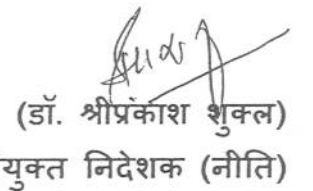 (डॉ. श्रीप्रकाश शुक्ल)
युक्त निदेशक (नीति)